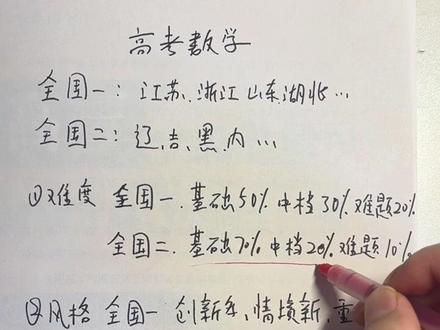 高考数学
全国一：江苏.浙江 山东.湖北…
全国二：辽.吉.黑.内…
①难度 全国一.基础50% 中档30% 难题20%
全国二.基础70% 中档20% 难题10%
②风格 全国一 创新多、情境新、重